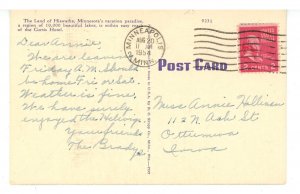 The Land of Hiawatha, Minnesota's vacation paradise,
a region of 10,000 beautiful lakes, is within easy reach
of the Curtis Hotel.
MINNEAPOLIS
AUG 20
1954
MINN.
POST CARD
Dear Annie,
We are leaving
Friday A.M. Should
be home Fri or Sat.
Weather is fine,
We have surely
enjoyed the
Yours friends
The Bradys
Miss Annie
112 N Ash St
Ottumwa
Iowa